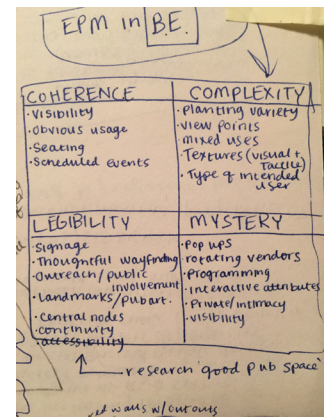 EPM in B.E.
COHERENCE
· Visibility
· Obvious usage
· Seating
· Scheduled events
COMPLEXITY
· Planting variety
· View points
· mixed uses
· Textures (visual + tactile)
· Type of intended user
LEGIBILITY
· Signage
· Thoughtful wayfinding
· Outreach/public involvement
· Landmarks/pub art.
· central nodes
· continuity
· accessibility
MYSTERY
· Pop ups
· rotating vendors
· Programming
· interactive attributes
· Private/intimacy
· visibility
research 'good pub space'
walls w/cutouts